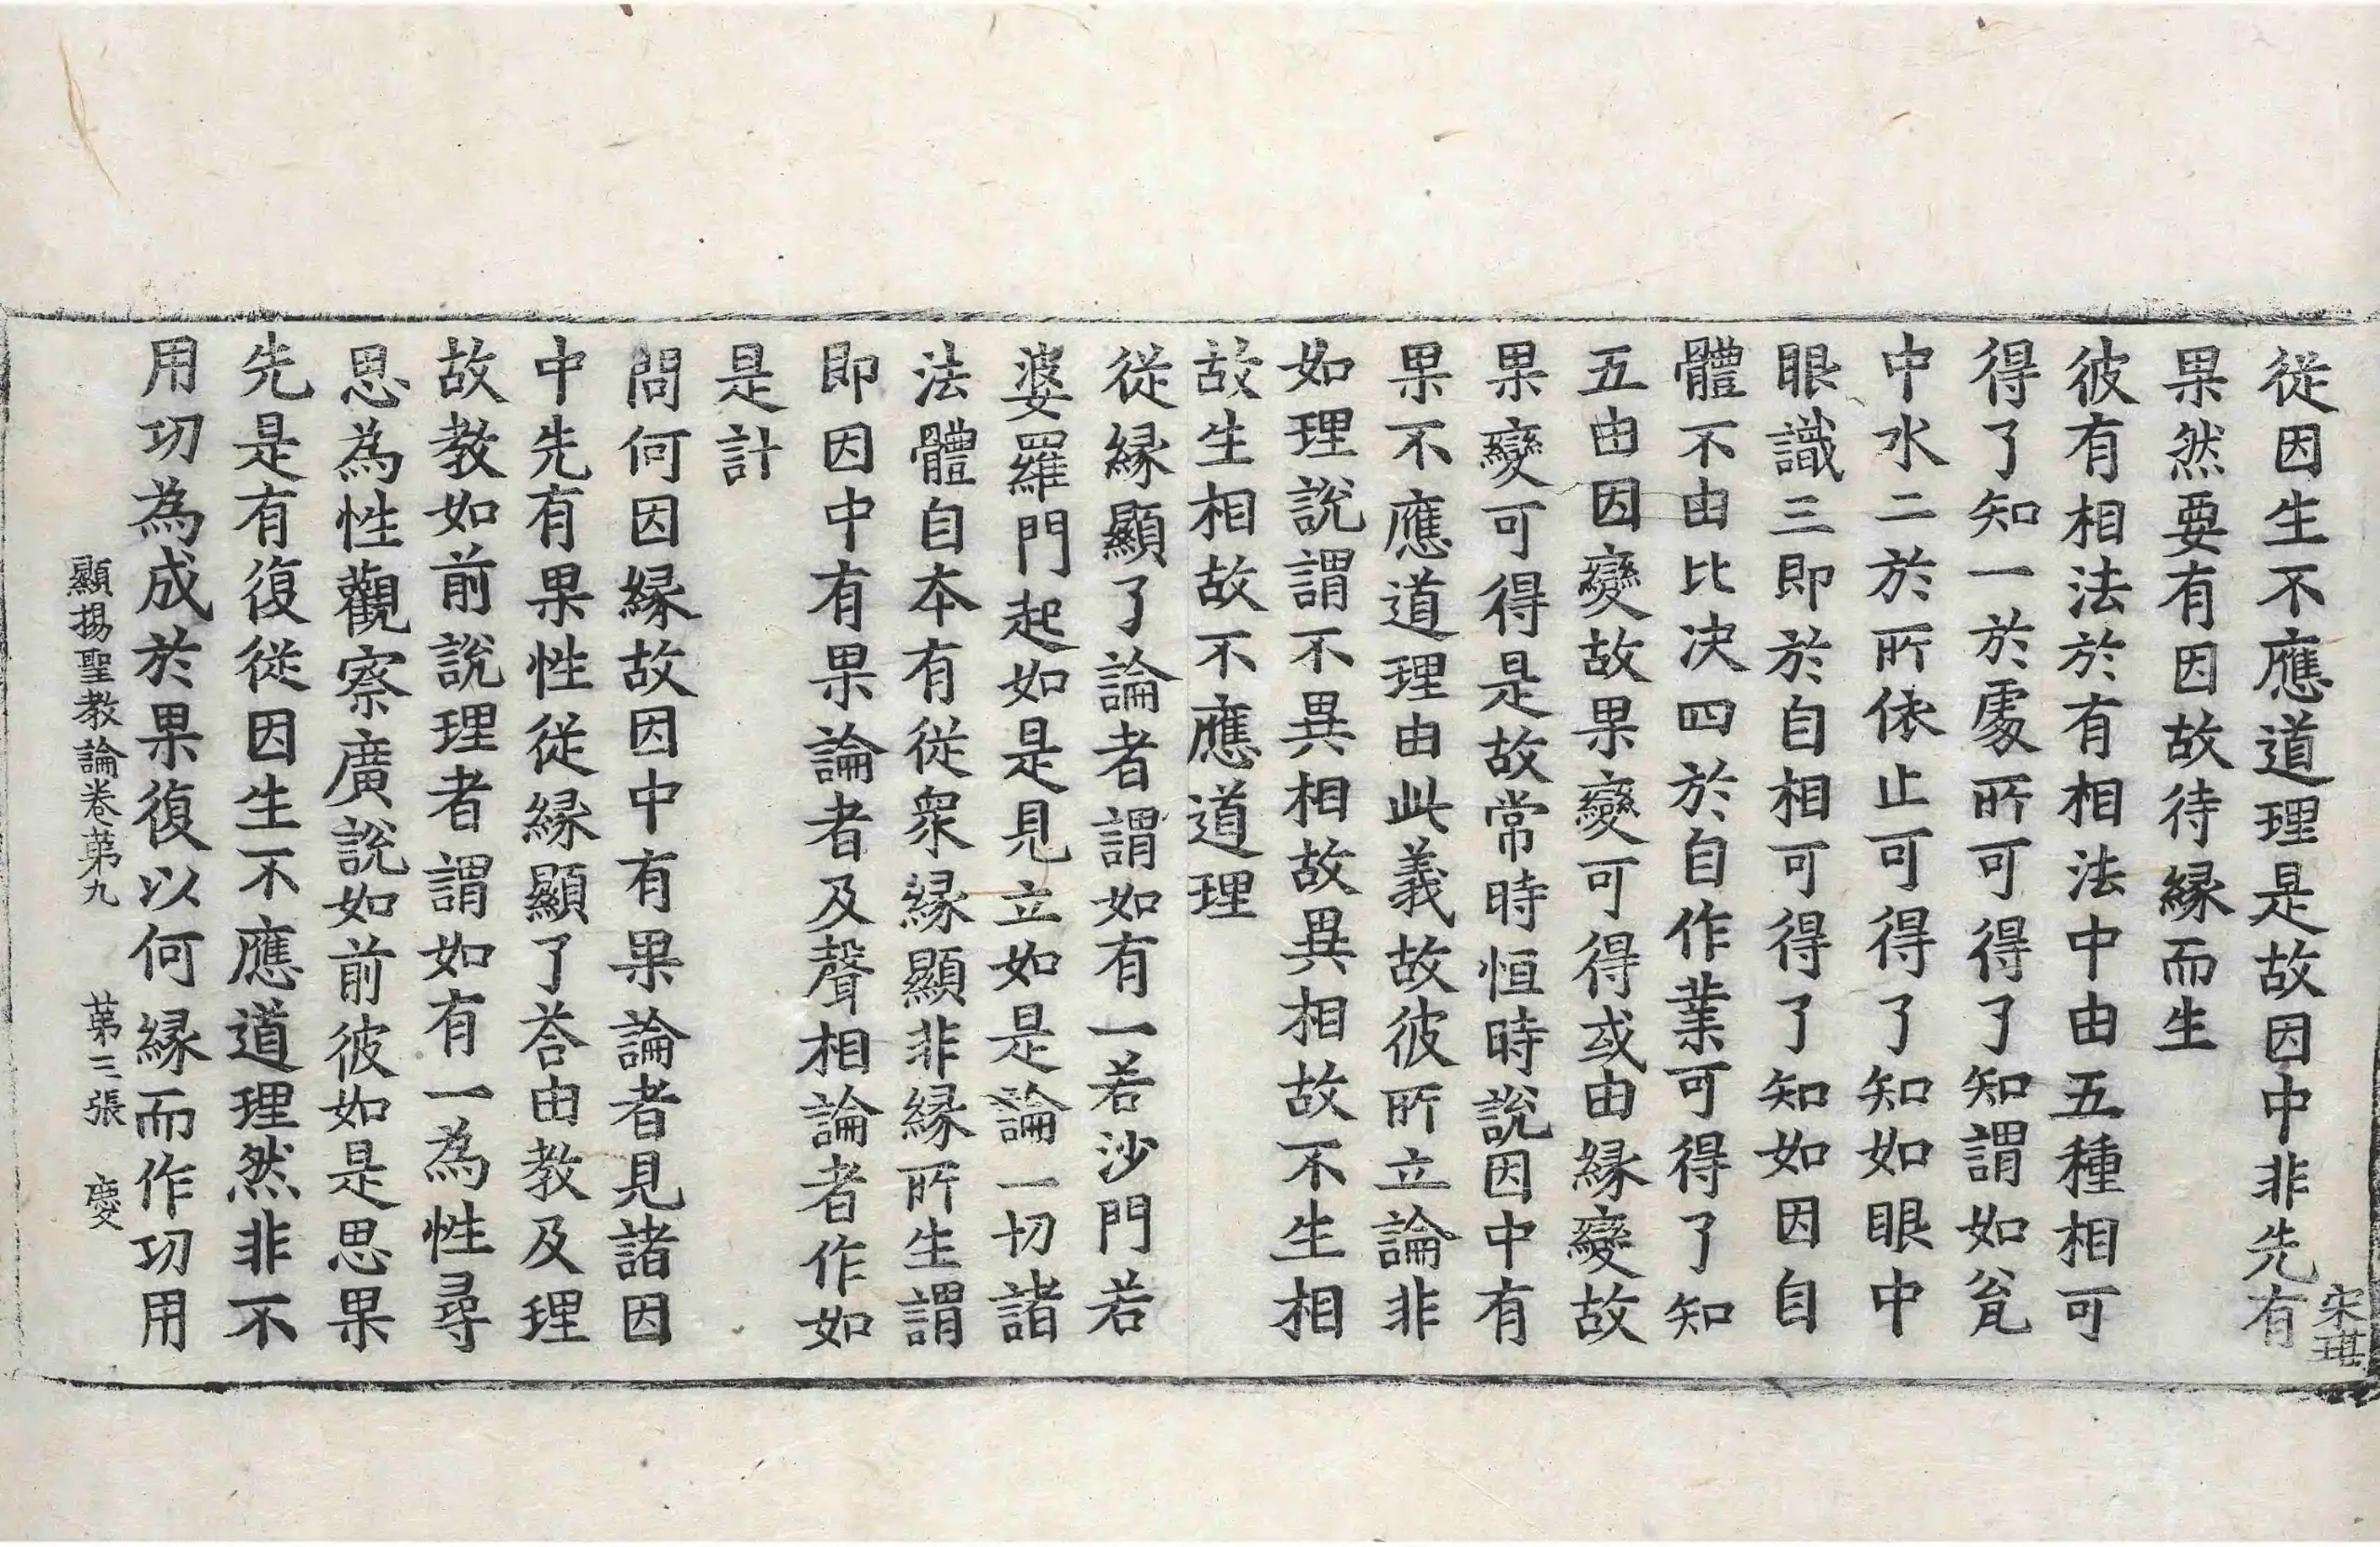 宋琪
從因生不應道理是故因中非先有
果然要有因故待縁而生
彼有相法於有相法中由五種相可
得了知一於處所可得了知謂如瓮
中水二於所依止可得了知如眼中
眼識三即於自相可得了知如因自
體不由比决四於自作業可得了知
五由因變故果變可得或由縁變故
果變可得是故常時恒時說因中有
果不應道理由此義故彼所立論非
如理說謂不異相故異相故不生相
故生相故不應道理
從縁顯了論者謂如有一若沙門若
婆羅門起如是見立如是論一切諸
法體自本有從衆縁顯非縁所生謂
即因中有果論者及聲相論者作如
是計
問何因縁故因中有果論者見諸因
中先有果性從縁顯了荅由教及理
故教如前說理者謂如有一為性尋
思為性觀察廣說如前彼如是思果
先是有復從因生不應道理然非不
用功為成於果復以何縁而作功用
顯揚聖教論卷苐九 苐三張 慶